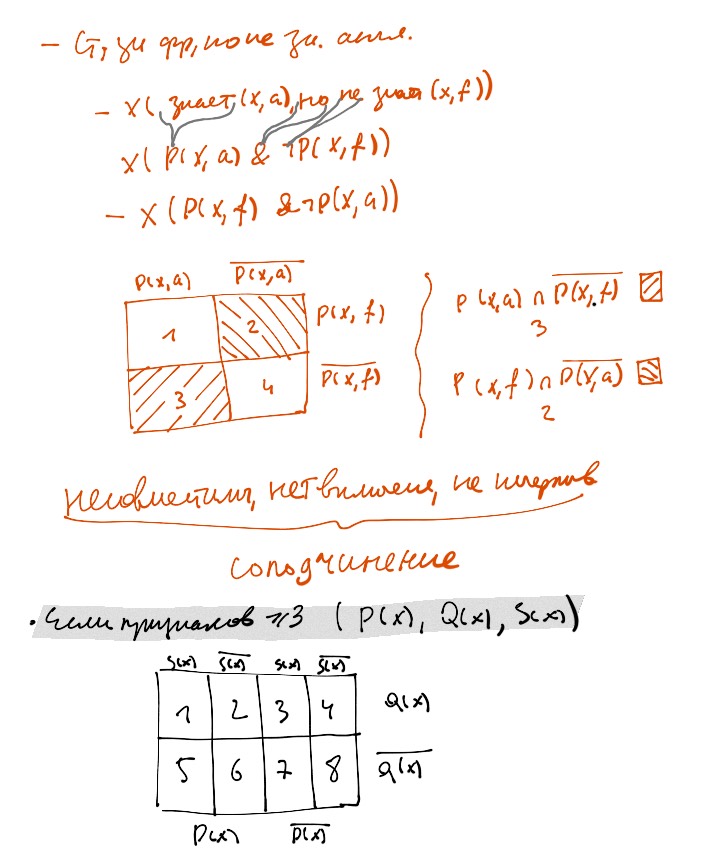 - Ст, зн фр, но не зн. англ.
- x( знает (x, a), но не знает (x, f))
x( P(x, a) & ¬P(x, f))
- x (P(x, f) & ¬P(x, a))
P(x,a) \overline{P(x,a)}
1 2 P(x, f)
3 4 \overline{P(x,f)}
P(x,a) ∩ \overline{P(x,f)}
3
P(x,f) ∩ \overline{P(x,a)}
2
несовместимы, нет включения, не исчерпыв
соподчинение
• Если признаков ≥3 ( P(x), Q(x), S(x))
S(x) \overline{S(x)} S(x) \overline{S(x)}
1 2 3 4 Q(x)
5 6 7 8 \overline{Q(x)}
P(x) \overline{P(x)}